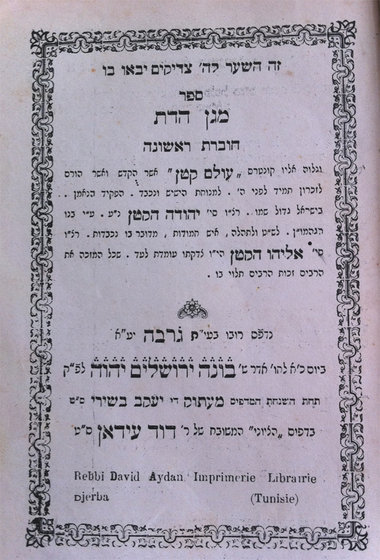 זה השער לה׳ צדיקים יבאו בו
ספר
מגן הדת
חוברת ראשונה
ונלוה אליו קונטרס „עולם קטן" אשר הקדש ואשר הורם
לזכרון תמיד לפני ה׳. למנוחת הישיש ונכבד. הפקיד הנאמן.
בישראל גדול שמו. רל״ו סי׳ יהודה הקטן נ״ע. ע״י בנו
הנחמו״ן. לש״ט ולתהלה, איש חמודות, מדובר בו נכבדות. רל״ו
סי׳ אליהו הקטן הי״ו לדקתו עומדת לעד. שכל המזכה את
הרבים זכות הרבים תלוי בו.
נדפס רובו בעי״ת ג׳רבה יע״א
ביום כ״א להו׳ אדר ש׳ בונה ירושלים יהוה לפ״ק
תחת השגחת המדפיס מעתוק די יעקב בשירי ס״ט
בדפוס „הליוני" המשובח של ר׳ דוד עידאן ס״ט
Rebbi David Aydan Imprimerie Librairie
Djerba (Tunisie)